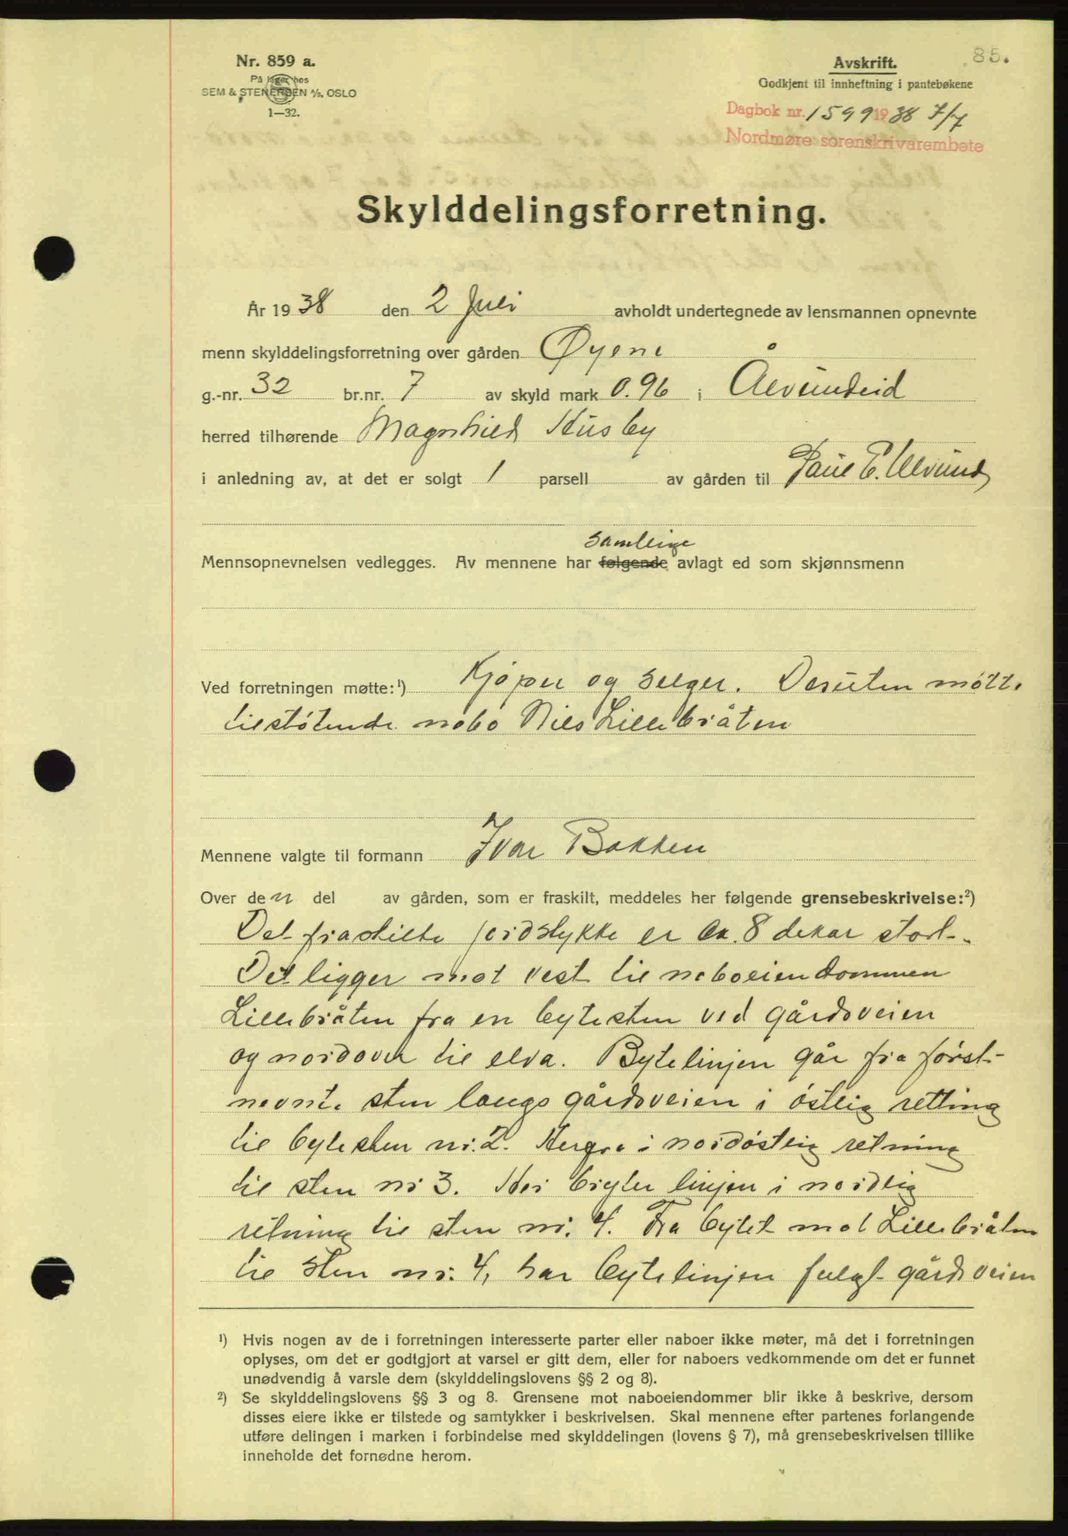 85.
Nr. 859 a.
På lager hos
SEM & STENERSEN A/S, OSLO
1—32.
Avskrift.
Godkjent til innheftning i pantebøkene
Dagbok nr. 1599 1938 7/7
Nordmøre sorenskriverembete
Skylddelingsforretning.
År 1938 den 2 Juli avholdt undertegnede av lensmannen opnevnte
menn skylddelingsforretning over gården Øyene
g.-nr. 32 br.nr. 7 av skyld mark 0.96 i Ålvundeid
herred tilhørende Magnhild Husby
i anledning av, at det er solgt 1 parsell av gården til Paul E. Ulvund
samtlige
Mennsopnevnelsen vedlegges. Av mennene har følgende avlagt ed som skjønnsmenn
Ved forretningen møtte:¹) Kjøper og selger. Desuten møtte
tilstøtende nabo Nils Lillebråten
Mennene valgte til formann Ivar Bakken
Over den del av gården, som er fraskilt, meddeles her følgende grensebeskrivelse:²)
Det fraskilte jordstykke er ca. 8 dekar stort.
Det ligger mot vest til naboeiendommen
Lillebråten fra en bytesten ved gårdsveien
og nordover til elva. Bytelinjen går fra først-
nevnte sten langs gårdsveien i østlig retting
til bytesten nr. 2. Herfra i nordøstlig retning
til sten nr 3. Her bryter linjen i nordlig
retning til sten nr. 4. Fra bytet mot Lillebråten
til sten nr. 4, har bytelinjen fulgt gårdsveien
¹) Hvis nogen av de i forretningen interesserte parter eller naboer ikke møter, må det i forretningen
oplyses, om det er godtgjort at varsel er gitt dem, eller for naboers vedkommende om det er funnet
unødvendig å varsle dem (skylddelingslovens §§ 2 og 8).
²) Se skylddelingslovens §§ 3 og 8. Grensene mot naboeiendommer blir ikke å beskrive, dersom
disses eiere ikke er tilstede og samtykker i beskrivelsen. Skal mennene efter partenes forlangende
utføre delingen i marken i forbindelse med skylddelingen (lovens § 7), må grensebeskrivelsen tillike
inneholde det fornødne herom.